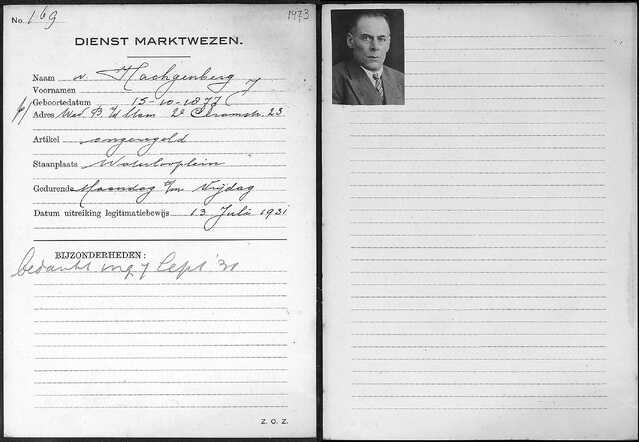 No. 169 1473
DIENST MARKTWEZEN.
Naam v. Hachgenberg
Voornamen J
Geboortedatum 15-10-1877
Adres 2e Ceramstr. 23
Artikel ongeregeld
Staanplaats Waterlooplein
Gedurende Maandag t/m Vrijdag
Datum uitreiking legitimatiebewijs 13 Juli 1931
BIJZONDERHEDEN:
Bedankt ing. 7 Sept '31
Z. O. Z.